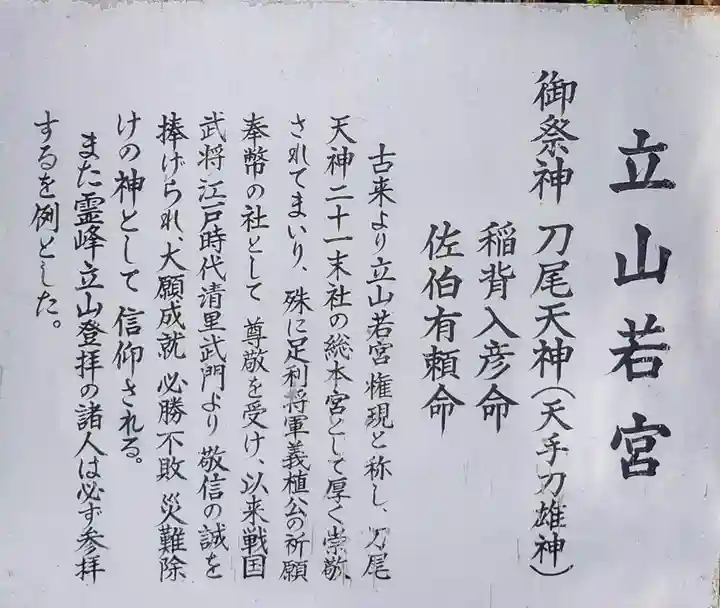 立山若宮
御祭神 刀尾天神(天手力雄神)
稲背入彦命
佐伯有頼命
古来より立山若宮権現と称し、刀尾
天神二十一末社の総本宮として厚く崇敬、
されてまいり、殊に足利将軍義植公の祈願
奉幣の社として尊敬を受け、以来戦国
武将、江戸時代清里武門より敬信の誠を
捧げられ、大願成就 必勝不敗 災難除
けの神として信仰される。
また霊峰立山登拝の諸人は必ず参拝
するを例とした。